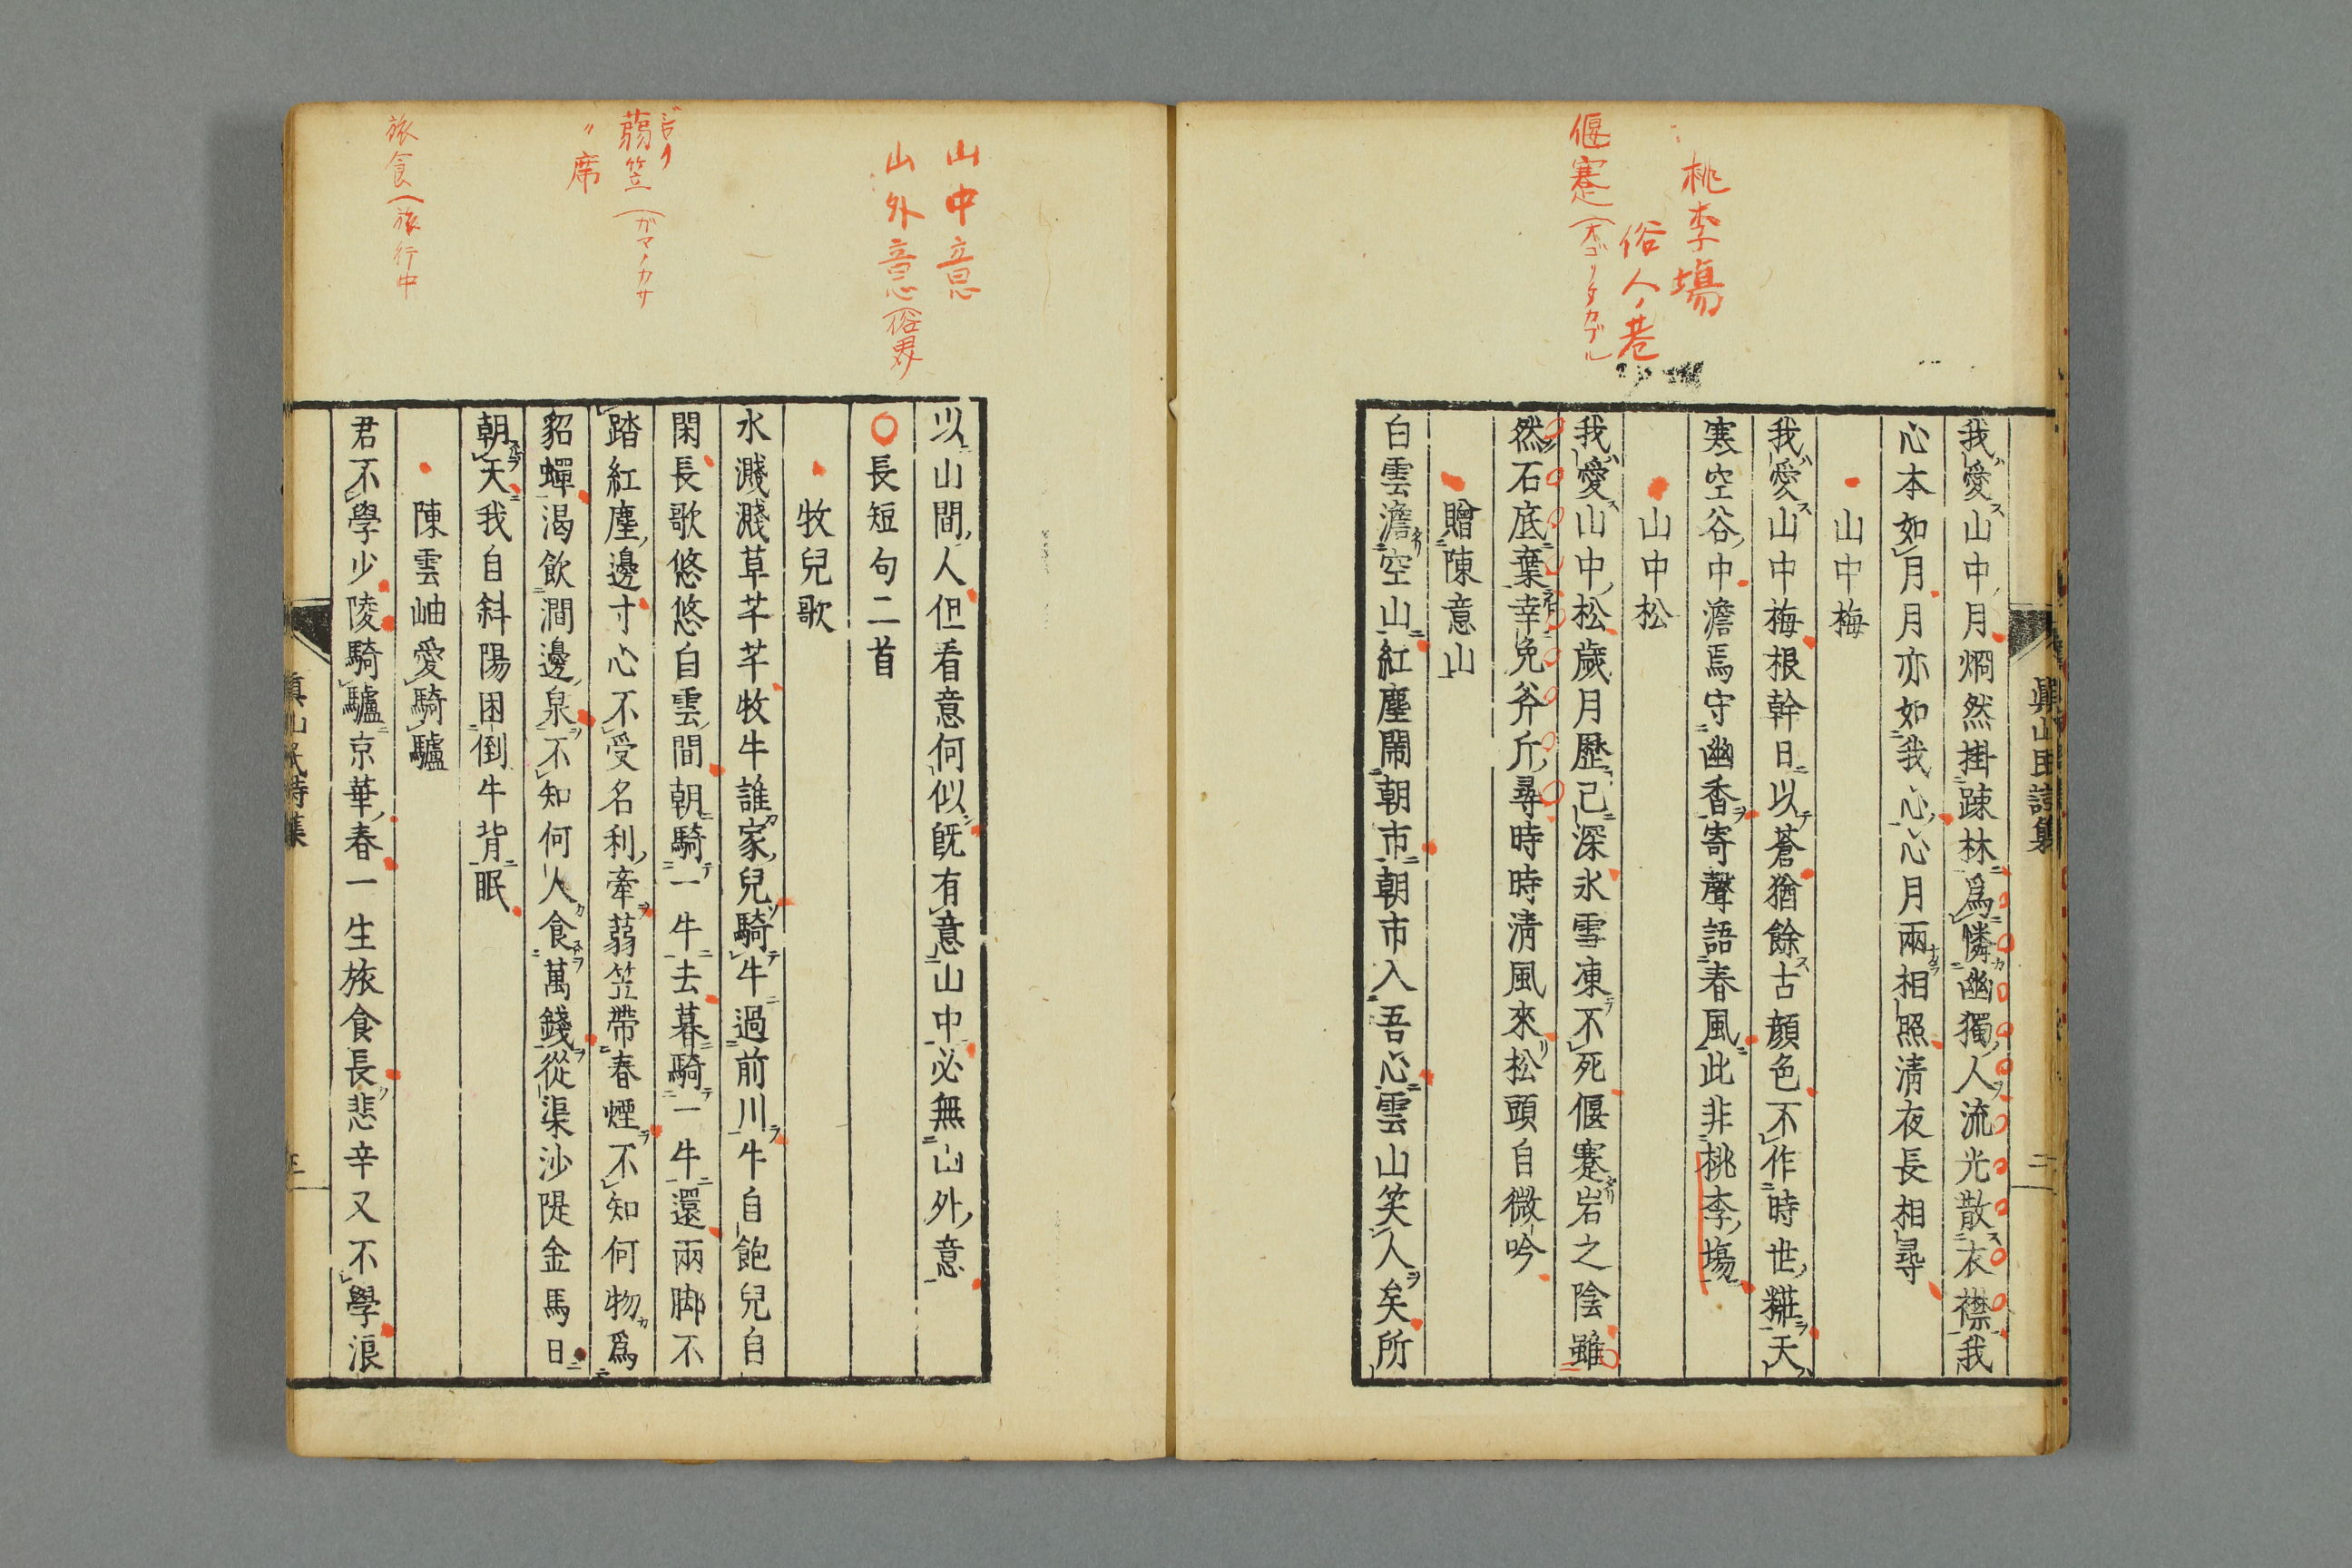 眞山民詩集
二
桃李塲
俗人ノ巷
偃蹇(オゴリタカブル
我愛山中月烱然掛疎林爲憐幽獨人流光散衣襟我
心本如月月亦如我心心月兩相照淸夜長相尋
山中梅
我愛山中梅根幹日以蒼猶餘古顏色不作時世糚天
寒空谷中澹焉守幽香寄聲語春風此非桃李塲
山中松
我愛山中松歲月歷已深氷雪凍不死偃蹇岩之陰雖
然石底棄幸免斧斤尋時時淸風來松頭自微吟
贈陳意山
白雲澹空山紅塵鬧朝市朝市入吾心雲山笑人矣所
山中意
山外意(俗界)
蒻笠(ガマノカサ
〃席
旅食(旅行中
以山間人但看意何似旣有意山中必無山外意
長短句二首
牧兒歌
水濺濺草芊芊牧牛誰家兒騎牛過前川牛自飽兒自
閑長歌悠悠白雲間朝騎一牛去暮騎一牛還兩脚不
踏紅塵邊寸心不受名利牽蒻笠帶春煙不知何物爲
貂蟬渴飮澗邊泉不知何人食萬錢從渠沙隄金馬日
朝天我自斜陽困倒牛背眠
陳雲岫愛騎驢
君不學少陵騎驢京華春一生旅食長悲辛又不學浪
眞山民詩集